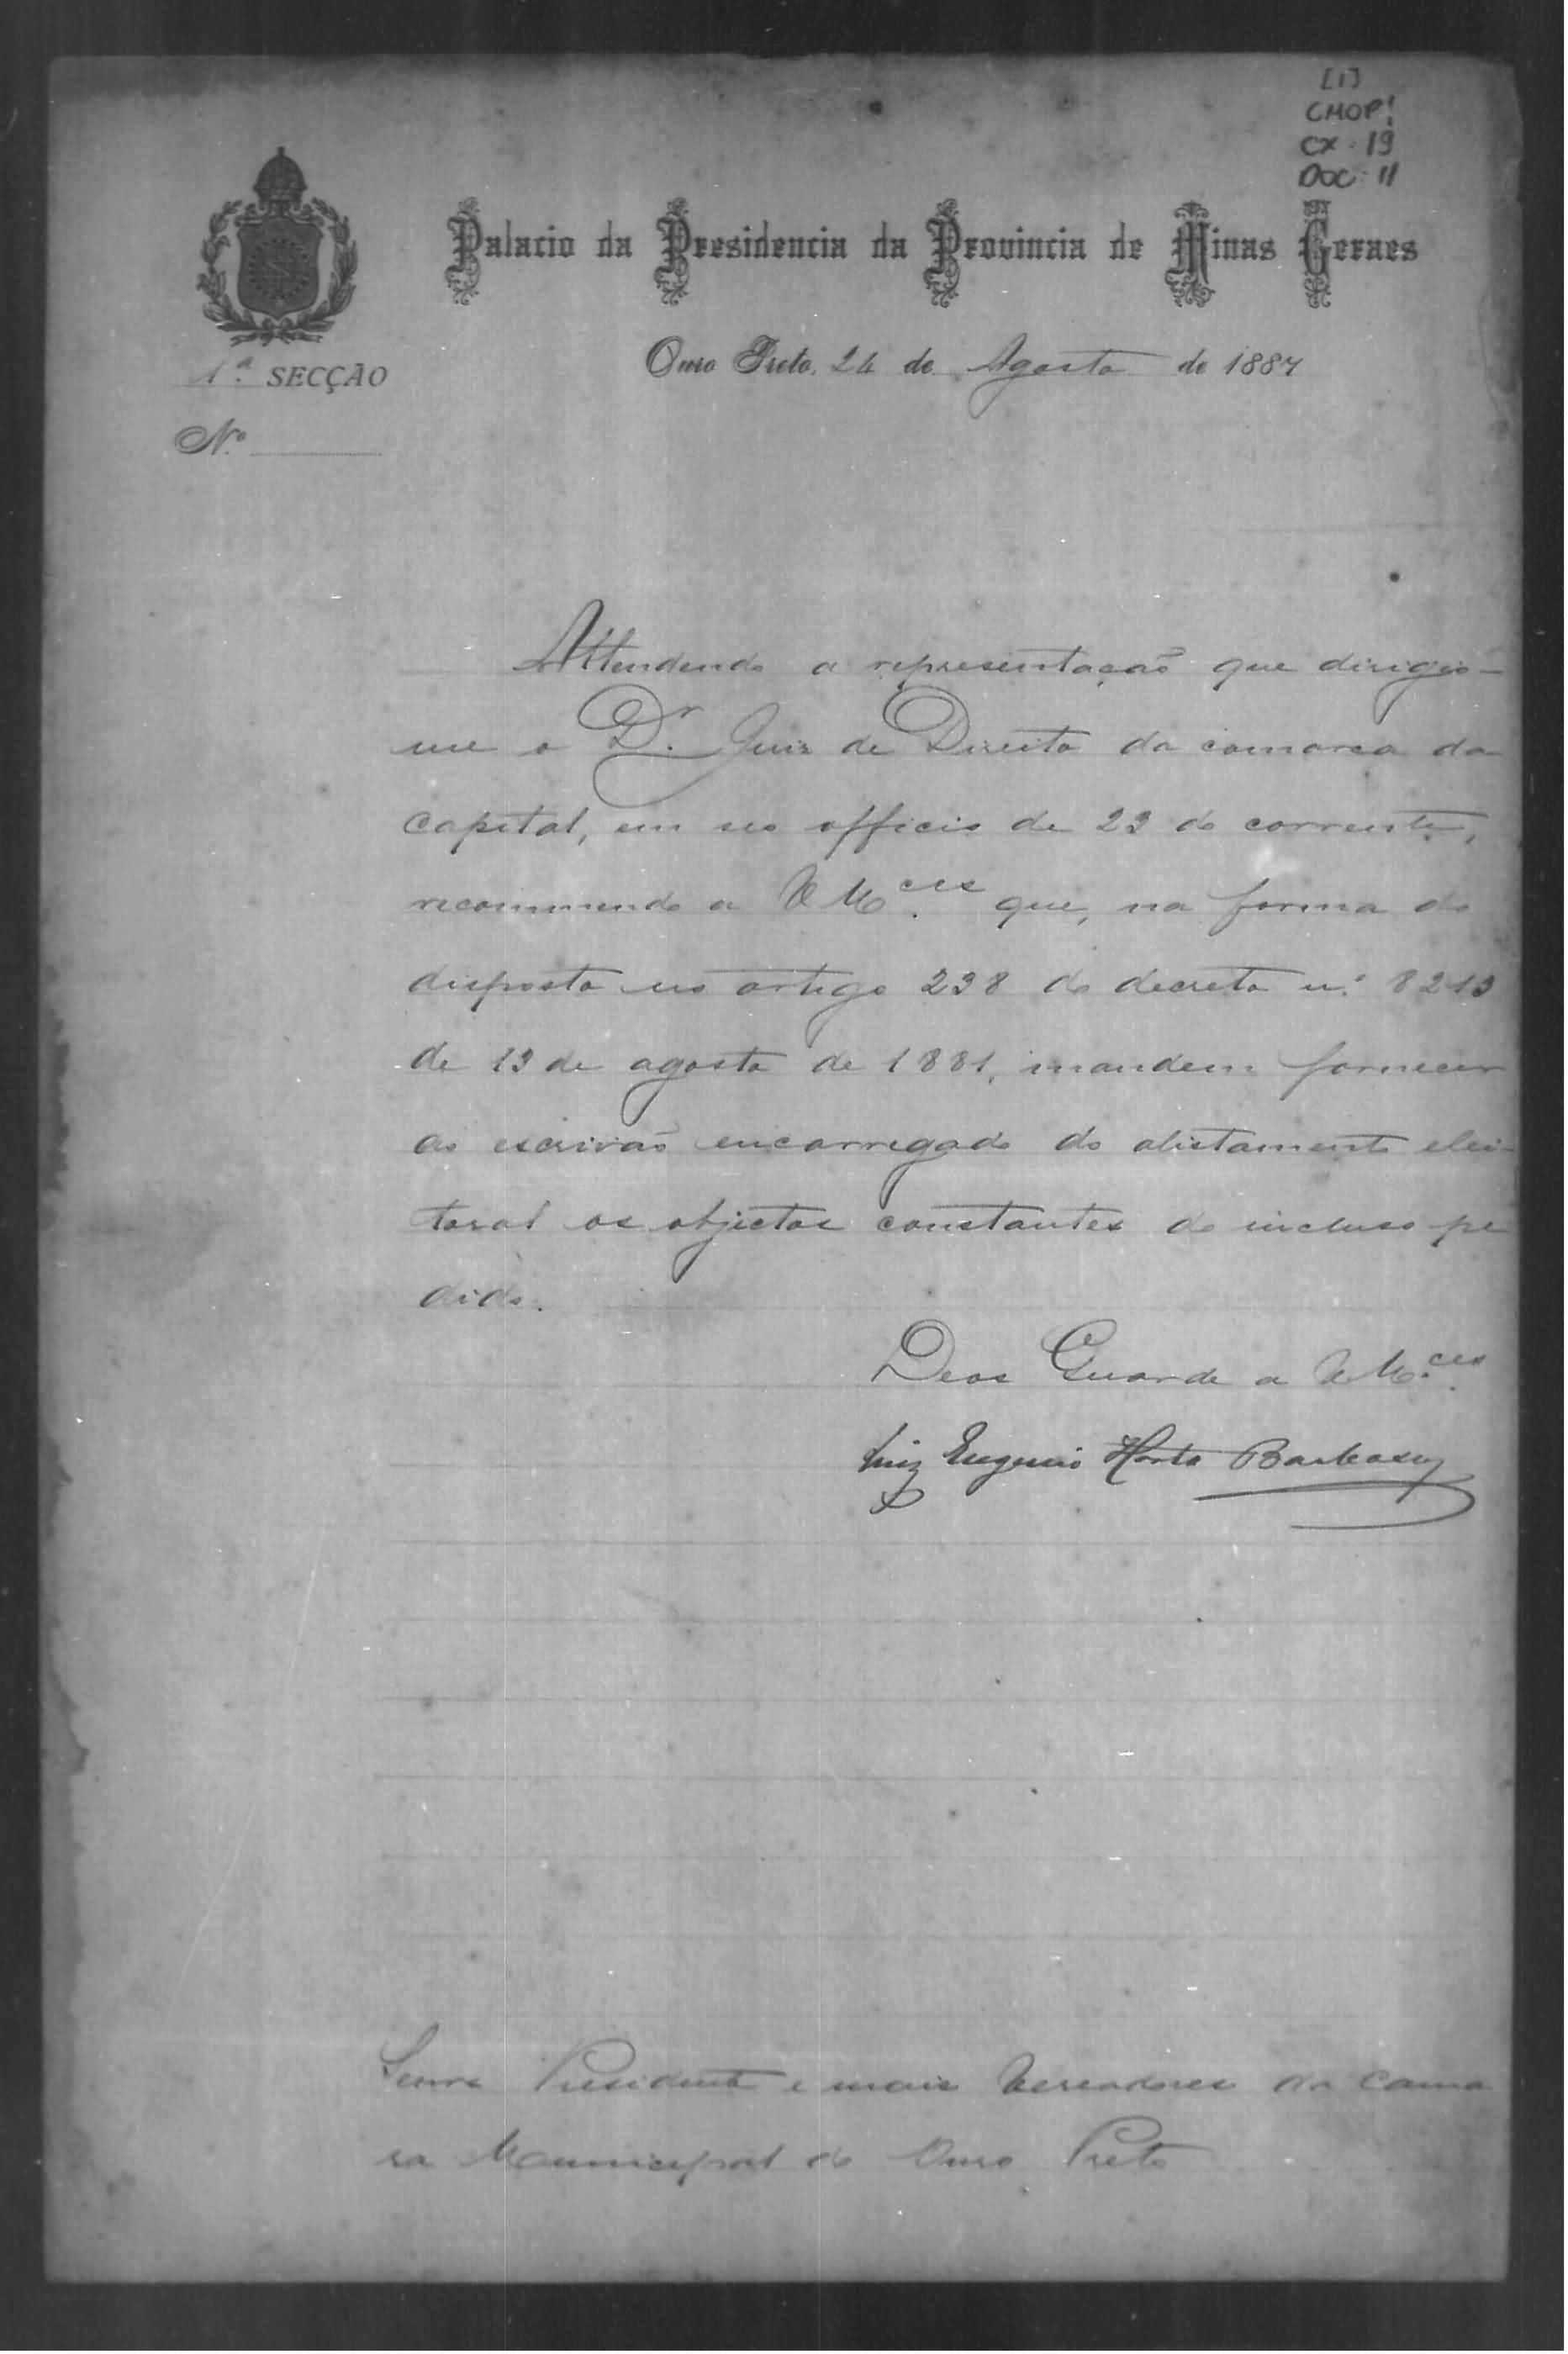 [1]
CMOP!
CX. 19
DOC: 11
Palacio da Presidencia da Provincia de Minas Geraes
1ª SECÇÃO
Ouro Preto, 24 de Agosto de 1887
Nº
Attendendo a representação que dirigio-
me o Dr. Juiz de Direito da comarca da
capital, em seo officio de 23 do corrente,
recommendo a VMces que, na forma do
disposto no artigo 238 do decreto n.º 8213
de 13 de agosto de 1881, mandem fornecer
ao escrivão encarregado do alistamento elei-
toral os objectos constantes do incluso pe
dido.
Deos Guarde a VMces
Luiz Eugenio Horta Barbosa
Senrs Presidente e mais Vereadores da Cama
ra Municipal de Ouro Preto